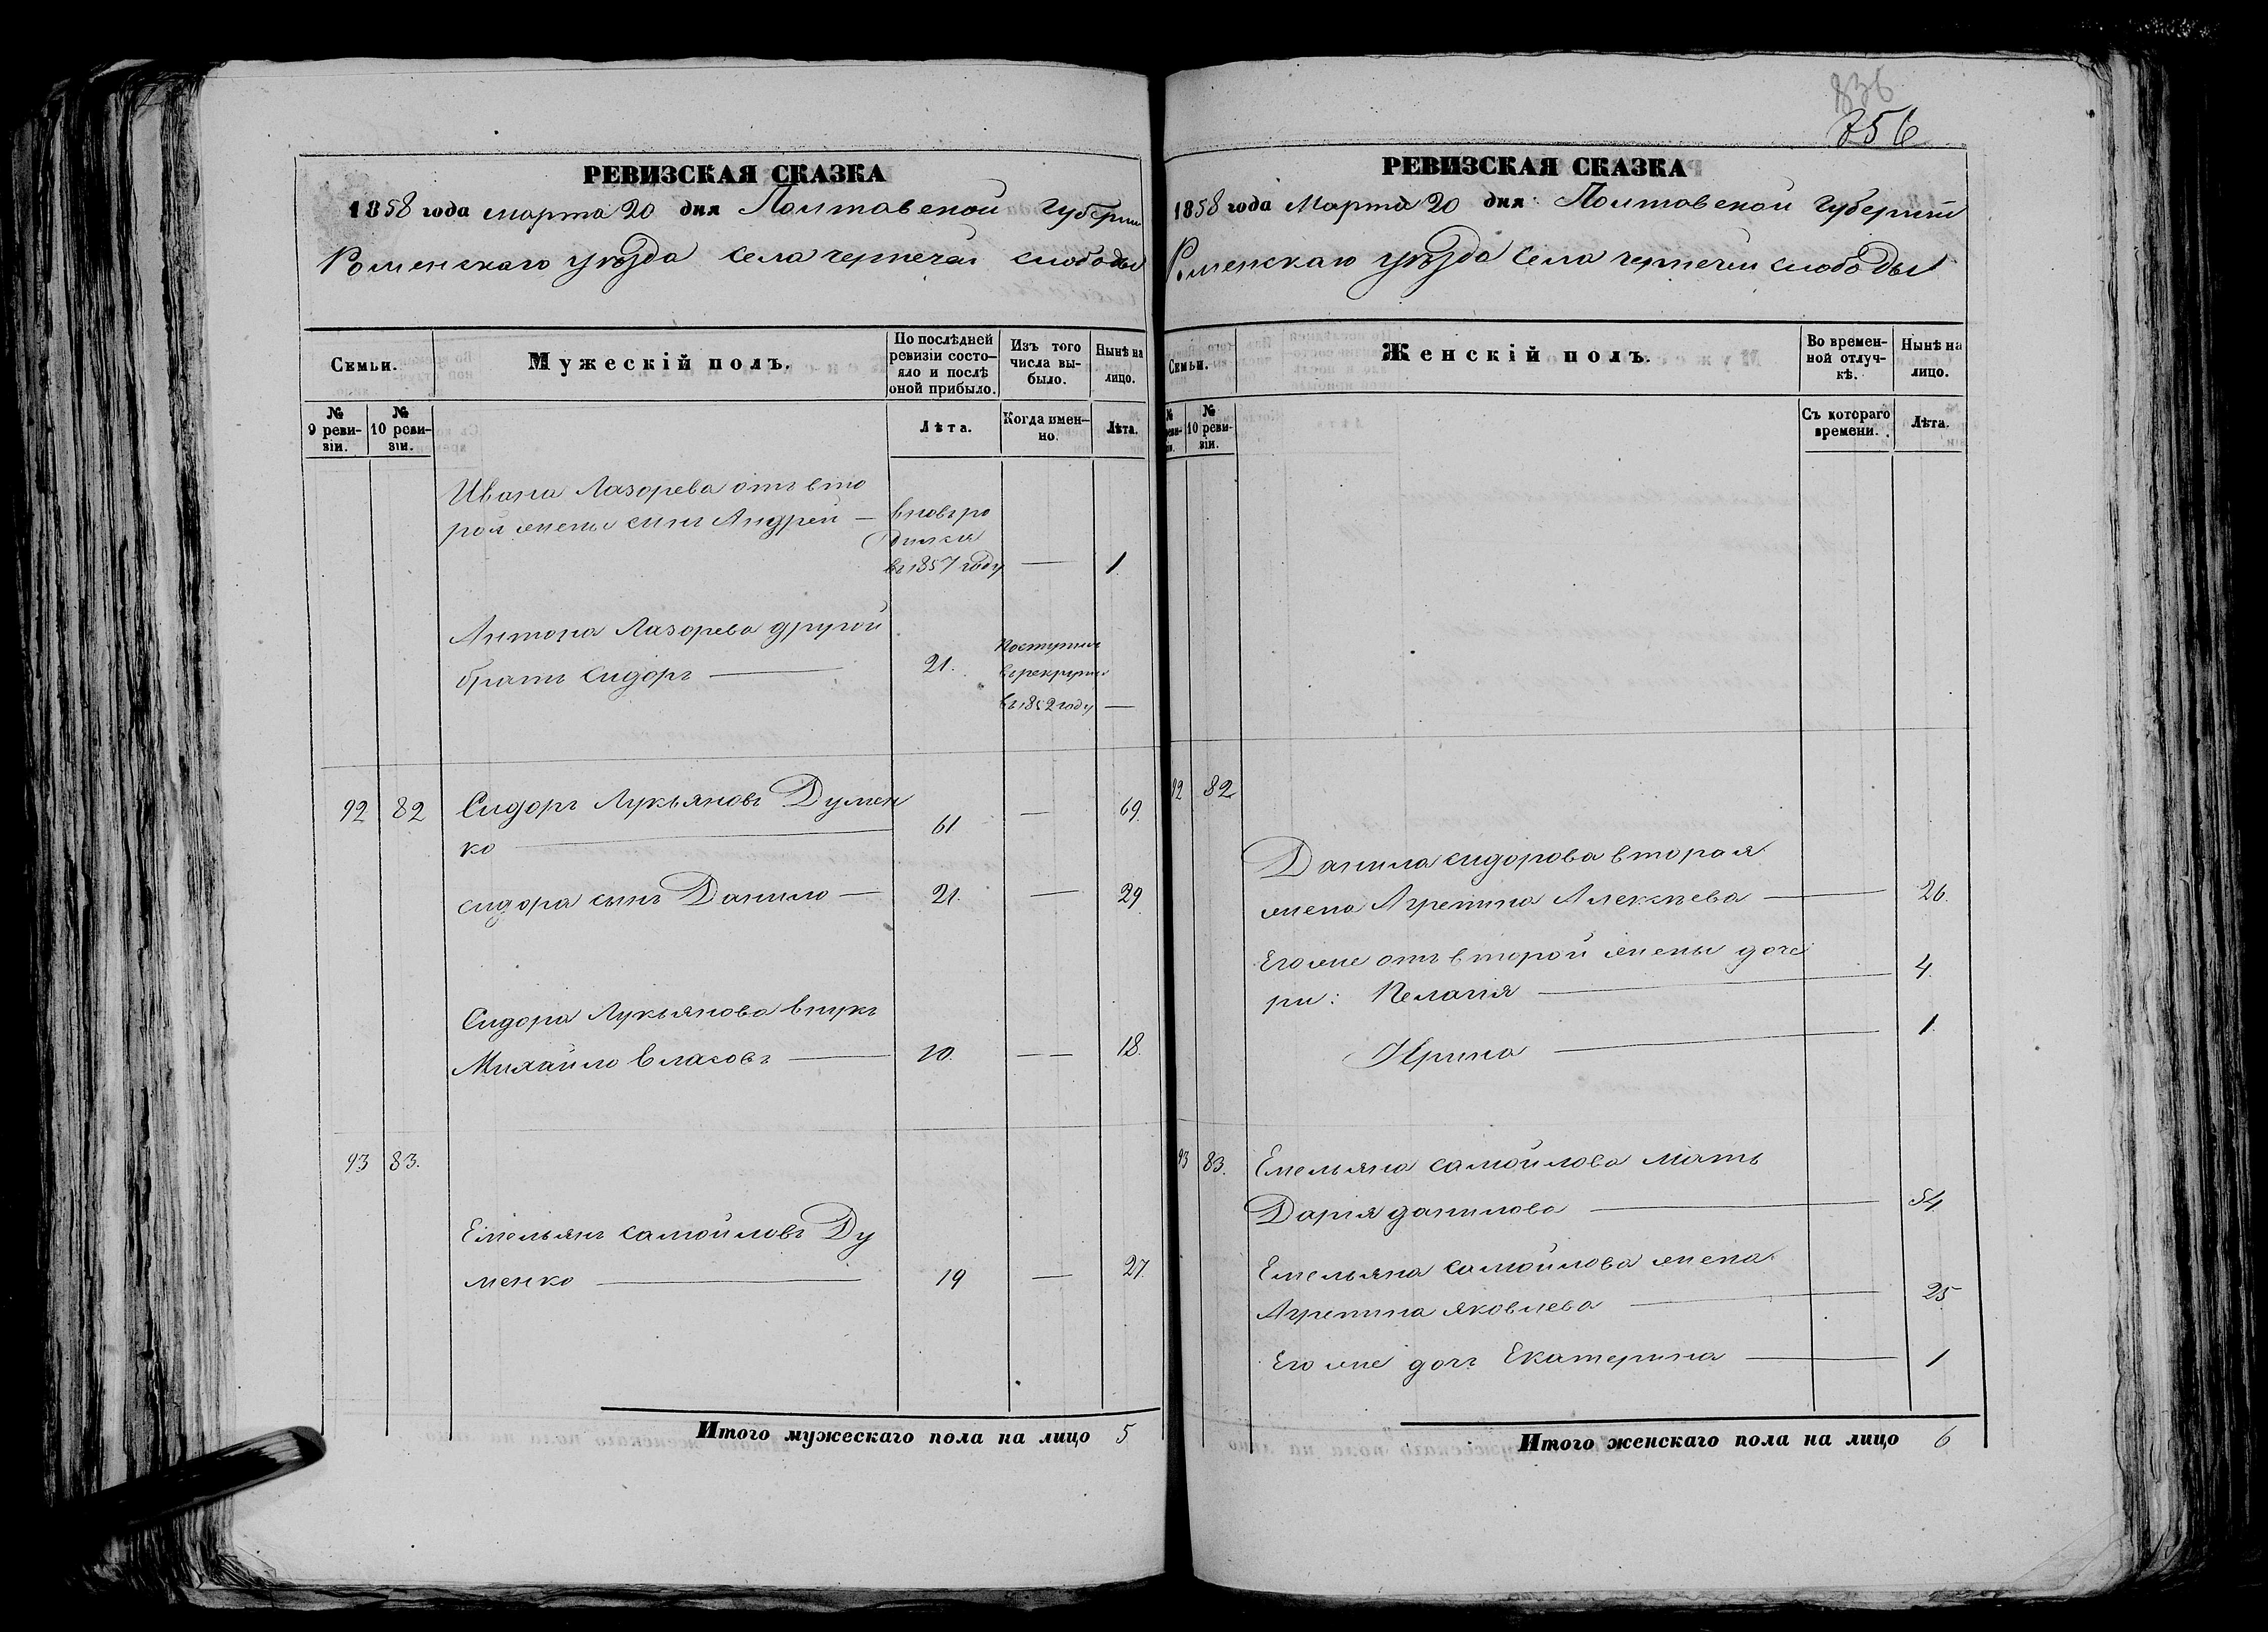 836
256
РЕВИЗСКАЯ СКАЗКА
1858 года марта 20 дня Полтавской Губерни
Роменскаго уѣзда села чернечей слободы
Семьи.
Мужескій полъ.
По послѣдней ревизіи состояло и послѣ оной прибыло.
Изъ того числа выбыло.
Нынѣ на лицо.
№ 9 ревизіи.
№ 10 ревизіи.
Лѣта.
Когда именно.
Лѣта.
Ивана Лазорева отъ вто
рой жены сынъ Андрей — вновь ро
дился
въ 1857 году — 1
Антона Лазорева другой
братъ Сидоръ — 21. поступилъ
въ рекруты
въ 1852 году —
92 82 Сидоръ Лукьяновъ Думен
ко — 61 — 69.
сидора сынъ Данило — 21. — 29.
Сидора Лукьянова внукъ
Михайло Власовъ — 10. — — 18.
93 83.
Емельянъ самойловъ Ду
менко — 19 — 27.
Итого мужескаго пола на лицо 5
РЕВИЗСКАЯ СКАЗКА
1858 года Марта 20 дня Полтавской Губерніи
Роменскаго уѣзда Села чернечей слободы
Семьи.
Женскій полъ.
Во временной отлучкѣ.
Нынѣ на лицо.
№ 10 ревизіи.
Съ котораго времени.
Лѣта.
92 82
Данила сидорова вторая
жена Агрепина Алексѣева — 26.
Его же отъ второй жены доче
ри: Пелагія — 4.
Ирина — 1.
93 83. Емельяна самойлова мать
Дарія данилова — 54
Емельяна самойлова жена
Агрепина яковлева — 25
Его же дочь Екатерина — 1
Итого женскаго пола на лицо 6